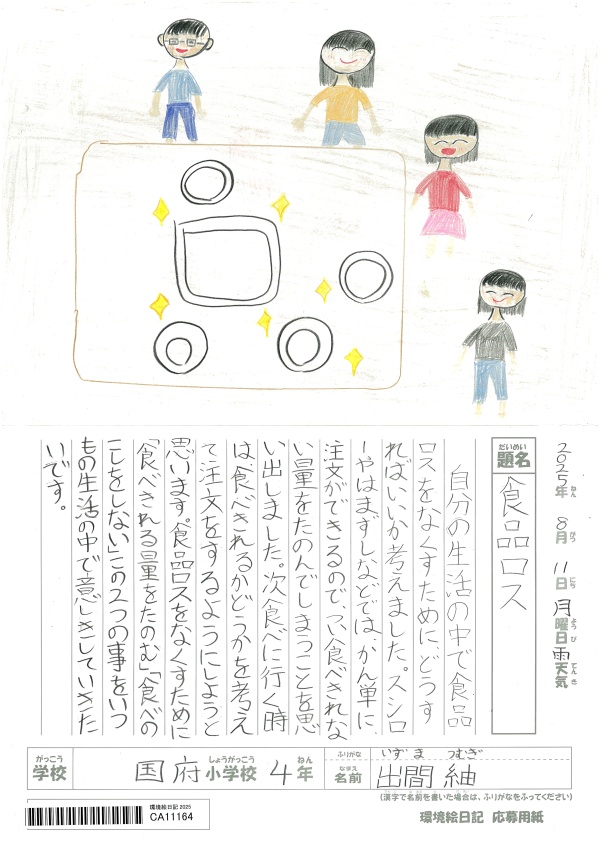 2025年 8月 11日 月曜日 雨天気
ねん がつ にち ようび てんき
だいめい
題名
食品ロス
自分の生活の中で食品
ロスをなくすために、どうす
ればいいか考えました。スシロ
ーやはまずしなどでは、かん単に、
注文ができるので、つい食べきれな
い量をたのんでしまうことを思
い出しました。次食べに行く時
は、食べきれるかどうかを考え
て注文をするようにしようと
思います。食品ロスをなくすために
「食べきれる量をたのむ」「食べの
こしをしない」この2つの事をいつ
もの生活の中で意しきしていきた
いです。
がっこう しょうがっこう ねん
学校 国府小学校 4年
ふりがな いずま つむぎ
なまえ
名前 出間 紬
(漢字で名前を書いた場合は、ふりがなをふってください)
環境絵日記 2025
CA11164
環境絵日記 応募用紙